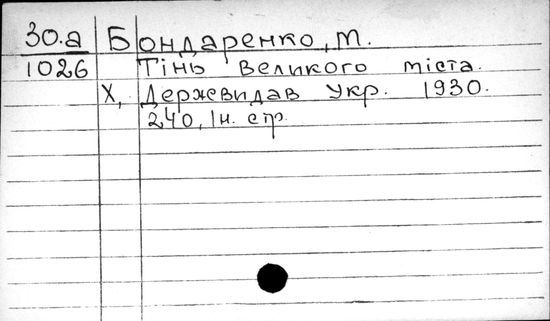 30.а Бондаренко, М.
1026 Тінь великого міста.
Х, Держвидав Укр. 1930.
240, Ін. стр.